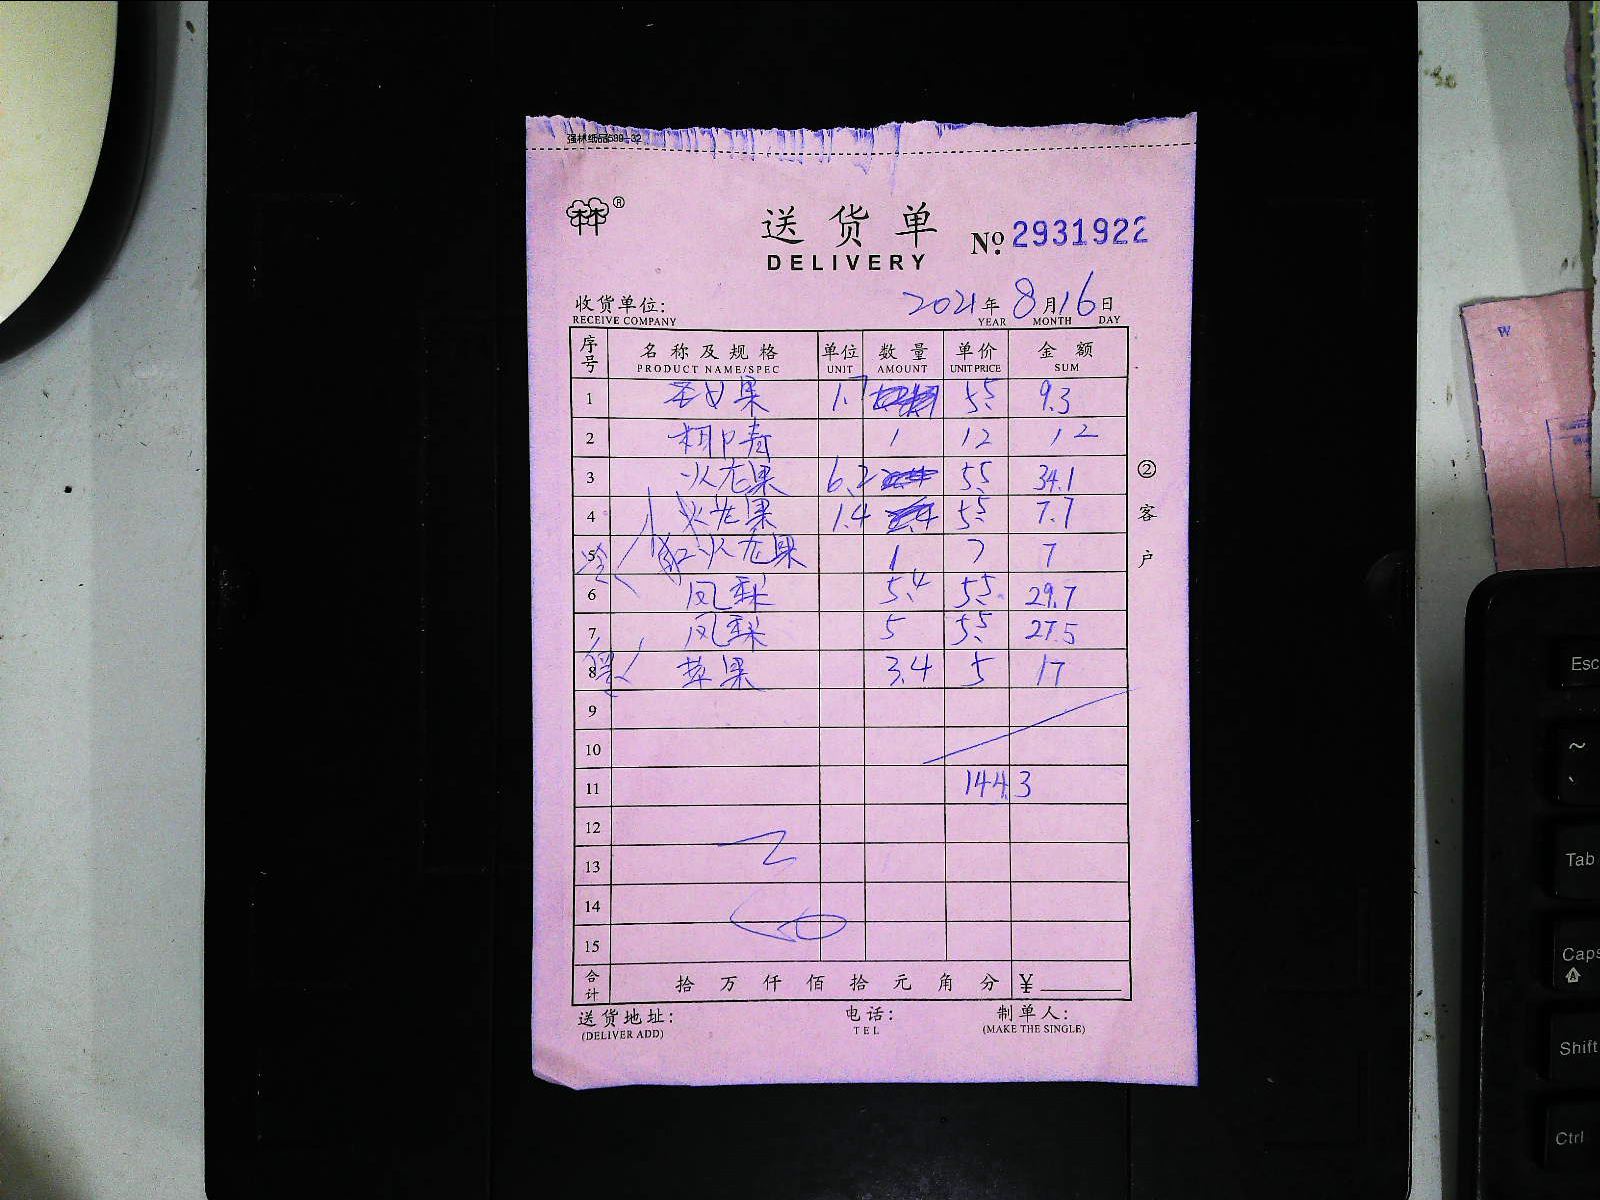 强林纸品589-32
林®
送货单
DELIVERY
No. 2931922
收货单位:
RECEIVE COMPANY
2021年8月16日
YEAR MONTH DAY
序号 名称及规格 单位 数量 单价 金额
PRODUCT NAME/SPEC UNIT AMOUNT UNIT PRICE SUM
1 圣女果 1.7 5.5 9.3
2 椰青 1 12 12
3 火龙果 6.2 5.5 34.1
4 火龙果 1.4 5.5 7.7
5 红火龙果 1 7 7
6 凤梨 5.4 5.5 29.7
7 凤梨 5 5.5 27.5
8 苹果 3.4 5 17
9
10
11 144.3
12
13
14
15
合计 拾万仟佰拾元角分 ¥
②客户
送货地址:
(DELIVER ADD)
电话:
TEL
制单人:
(MAKE THE SINGLE)
W
Esc
~
Tab
Caps
Shift
Ctrl